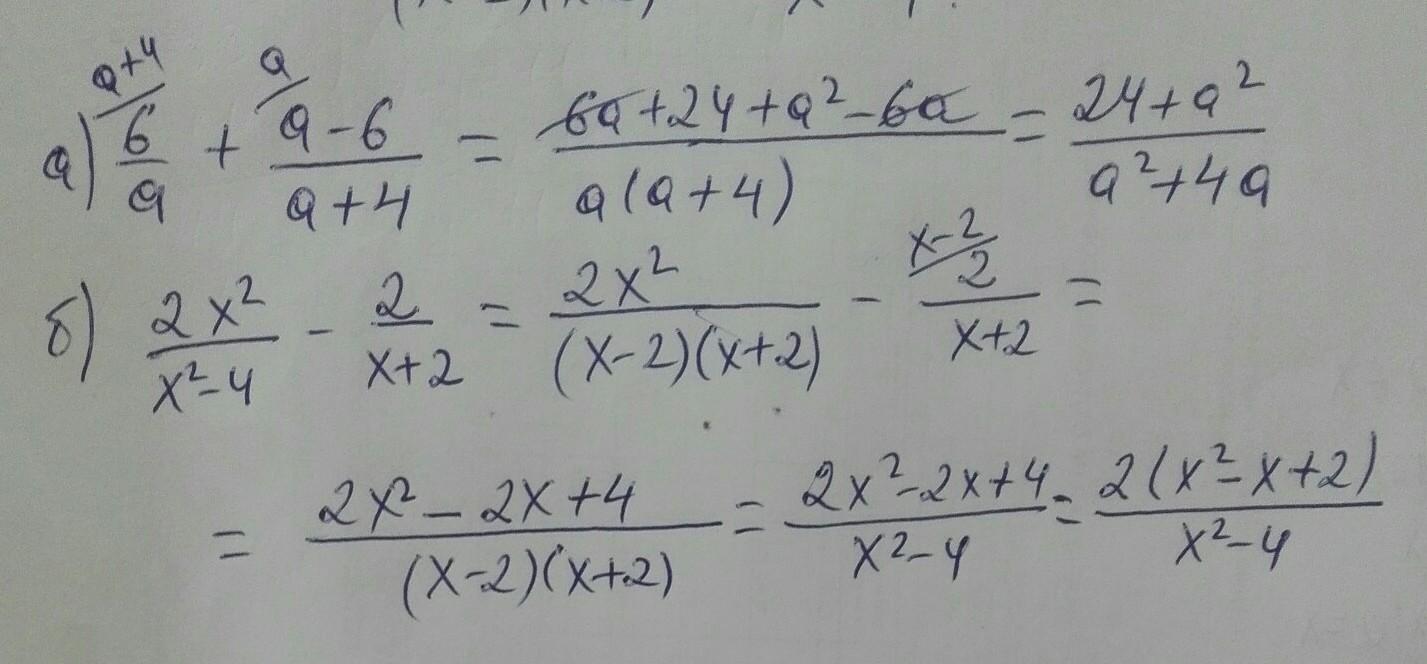 а) 6/a + (a-6)/(a+4) = (6a+24+a²-6a)/(a(a+4)) = (24+a²)/(a²+4a)
б) 2x²/(x²-4) - 2/(x+2) = 2x²/((x-2)(x+2)) - 2/(x+2) =
= (2x²-2x+4)/((x-2)(x+2)) = (2x²-2x+4)/(x²-4) = 2(x²-x+2)/(x²-4)